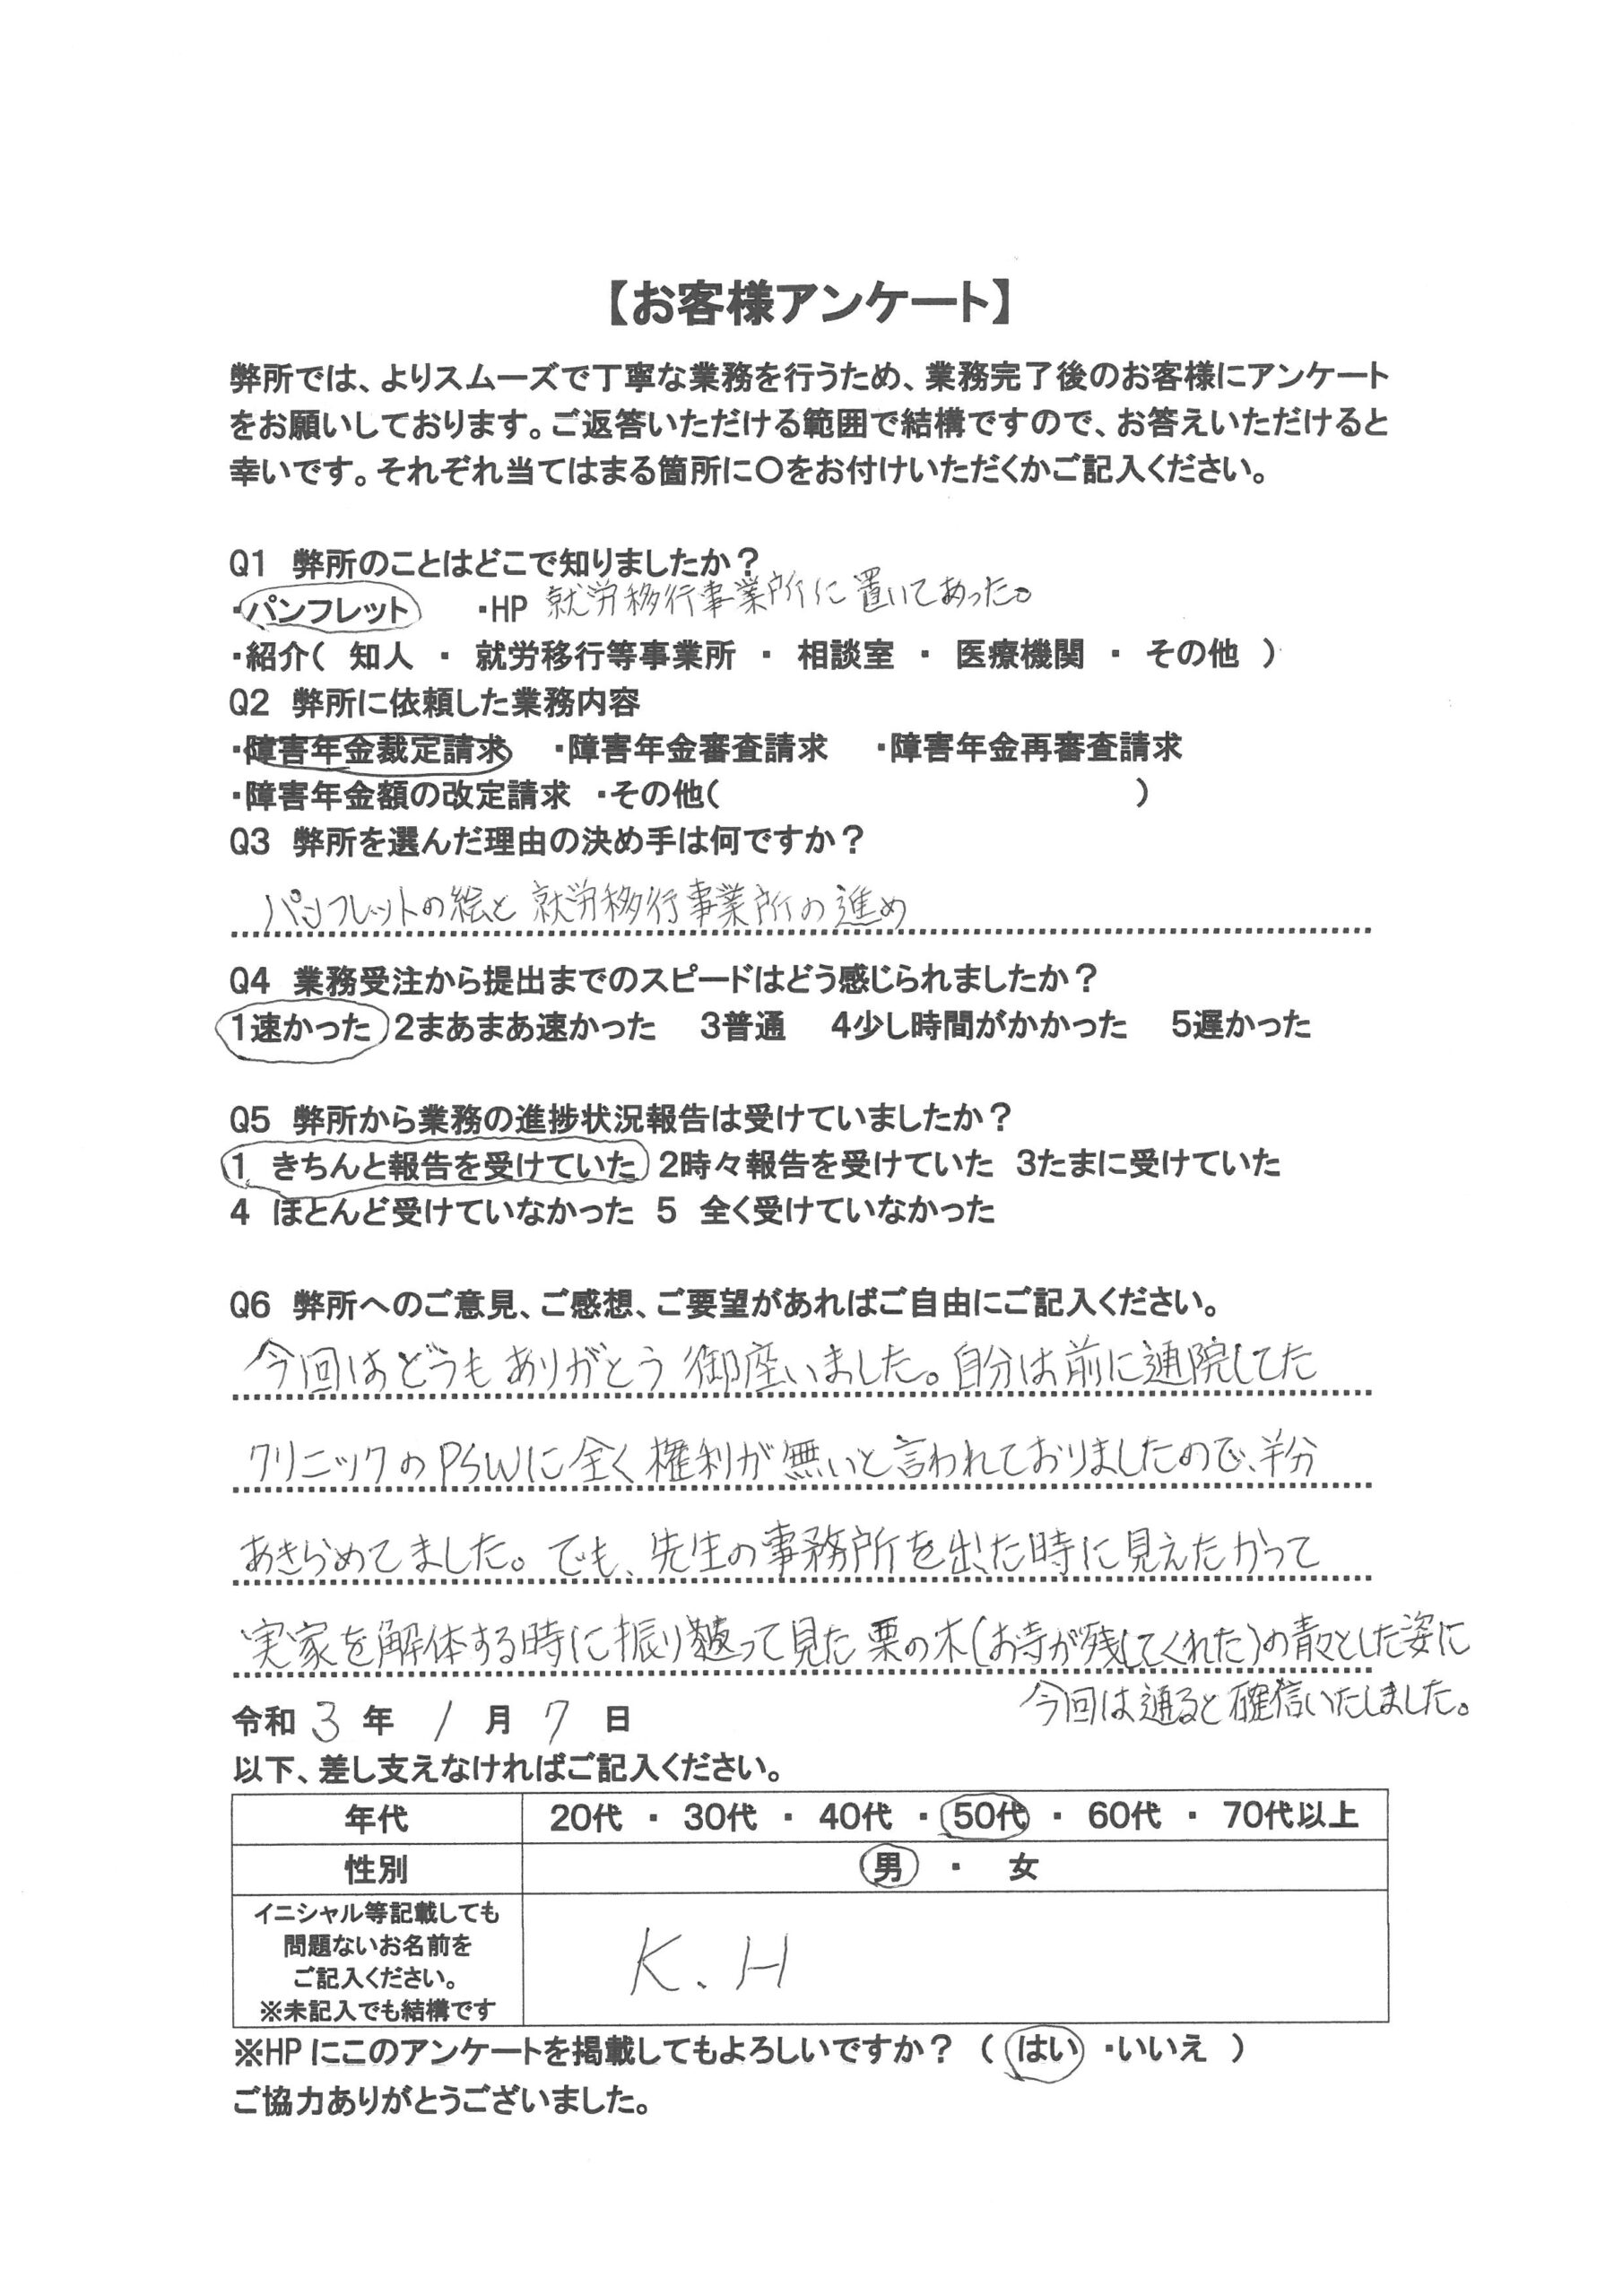 【お客様アンケート】
弊所では、よりスムーズで丁寧な業務を行うため、業務完了後のお客様にアンケート
をお願いしております。ご返答いただける範囲で結構ですので、お答えいただけると
幸いです。それぞれ当てはまる箇所に〇をお付けいただくかご記入ください。
Q1 弊所のことはどこで知りましたか？
・パンフレット ・HP 就労移行事業所に置いてあった。
・紹介（ 知人 ・ 就労移行等事業所 ・ 相談室 ・ 医療機関 ・ その他 ）
Q2 弊所に依頼した業務内容
・障害年金裁定請求 ・障害年金審査請求 ・障害年金再審査請求
・障害年金額の改定請求 ・その他（ ）
Q3 弊所を選んだ理由の決め手は何ですか？
パンフレットの絵と就労移行事業所の進め
Q4 業務受注から提出までのスピードはどう感じられましたか？
1速かった 2まあまあ速かった 3普通 4少し時間がかかった 5遅かった
Q5 弊所から業務の進捗状況報告は受けていましたか？
1 きちんと報告を受けていた 2時々報告を受けていた 3たまに受けていた
4 ほとんど受けていなかった 5 全く受けていなかった
Q6 弊所へのご意見、ご感想、ご要望があればご自由にご記入ください。
今回はどうもありがとう御座いました。自分は前に通院してた
クリニックのPSWに全く権利が無いと言われておりましたので、半分
あきらめてました。でも、先生の事務所を出た時に見えたかって
実家を解体する時に振り返って見た栗の木(お寺が残してくれた)の青々とした姿に
今回は通ると確信いたしました。
令和 3 年 1 月 7 日
以下、差し支えなければご記入ください。
年代 20代 ・ 30代 ・ 40代 ・ 50代 ・ 60代 ・ 70代以上
性別 男 ・ 女
イニシャル等記載しても
問題ないお名前を
ご記入ください。
※未記入でも結構です
K.H
※HPにこのアンケートを掲載してもよろしいですか？（ はい ・いいえ ）
ご協力ありがとうございました。